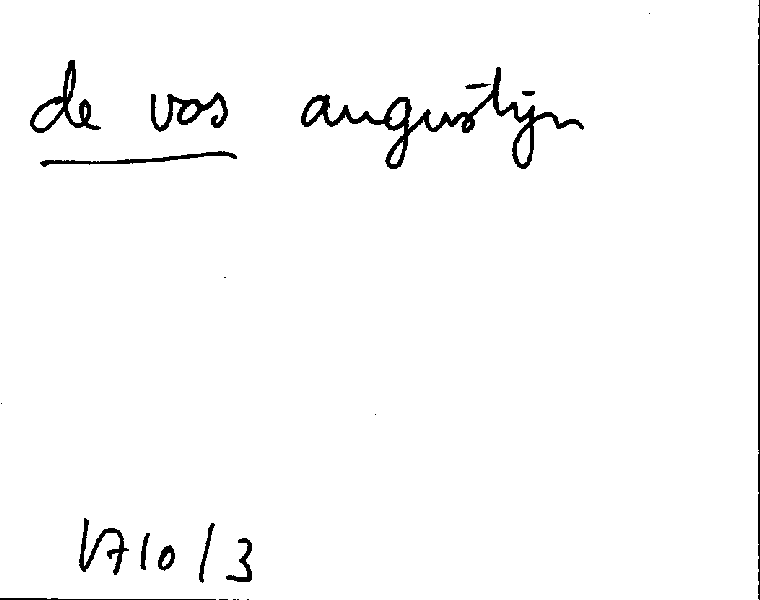 de vos augustijn
1710/3